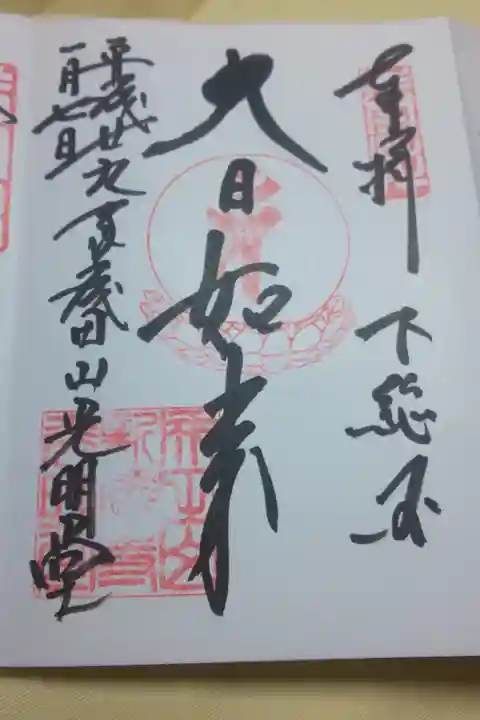 奉拝 下総国
大日如来
平成廿九年
一月七日
成田山光明堂